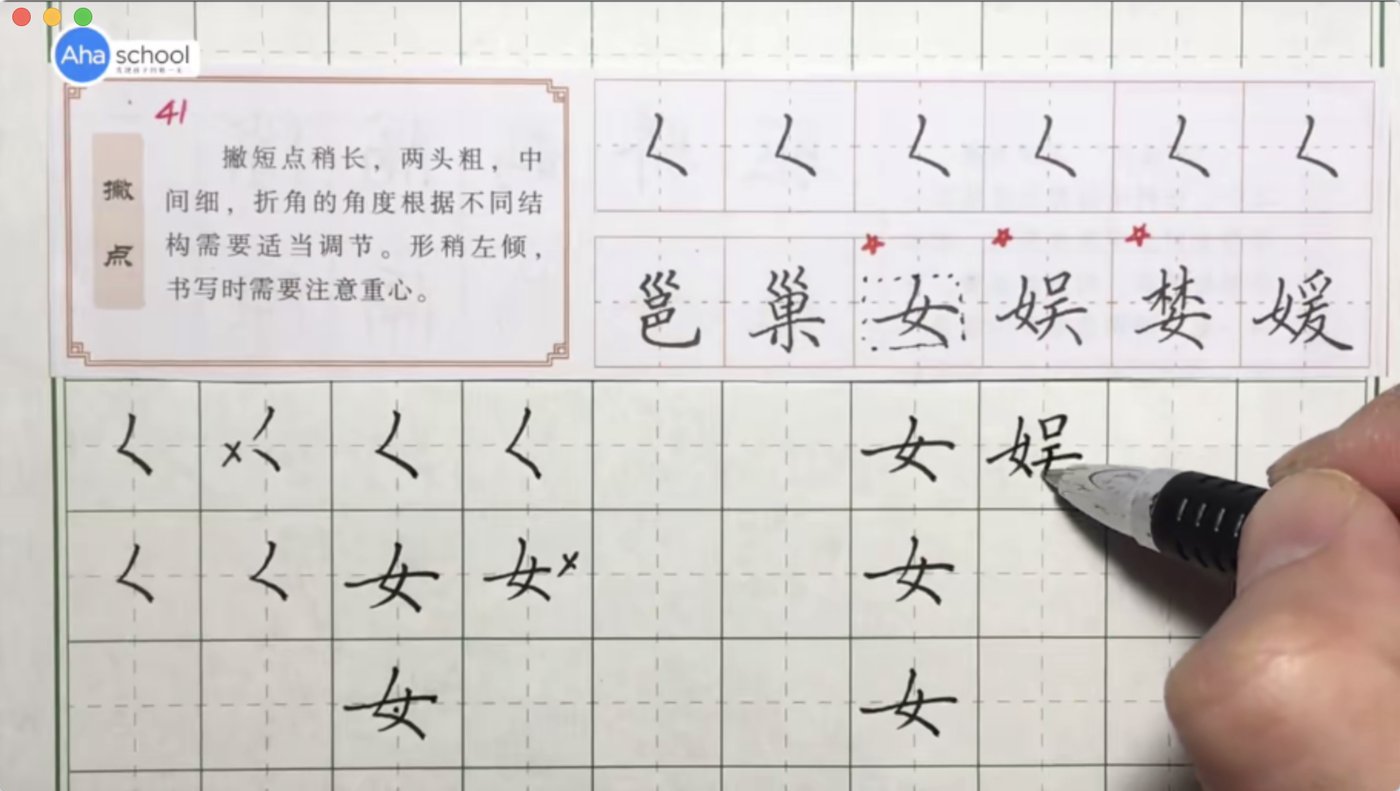 Aha school
41
撇点
撇短点稍长，两头粗，中
间细，折角的角度根据不同结
构需要适当调节。形稍左倾，
书写时需要注意重心。
𡿨 𡿨 𡿨 𡿨 𡿨 𡿨
邕 巢 女 娱 婪 媛
𡿨 x 𡿨 𡿨 𡿨 女 娱
𡿨 𡿨 女 女 x 女
女 女